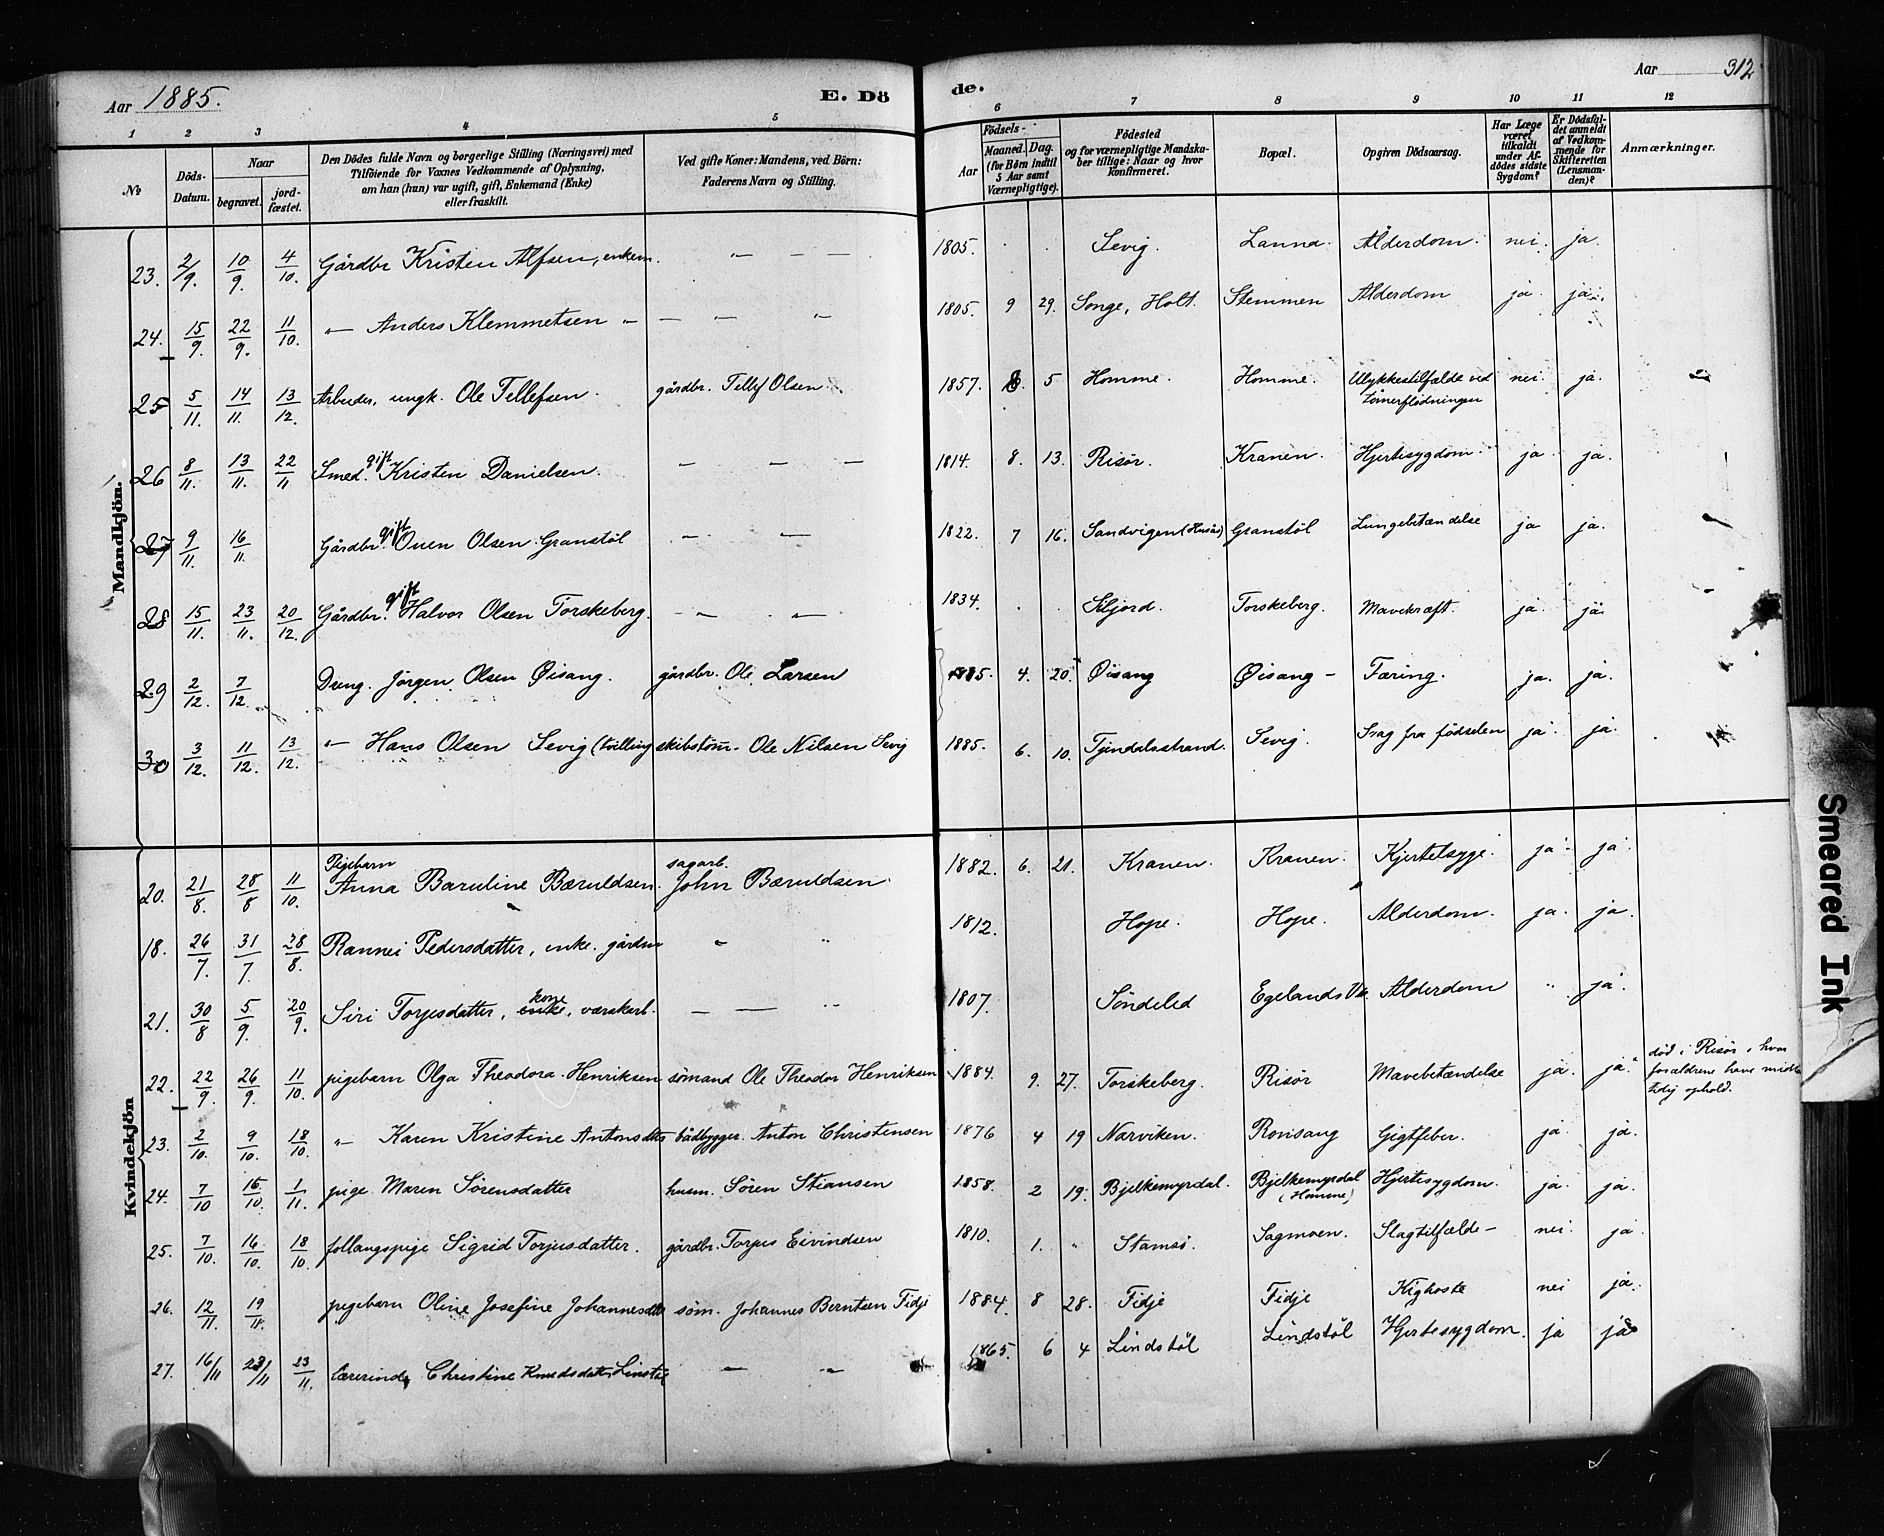 Aar 1885.
E. Dö
de.
Aar 312
1 2 3 4 5 6 7 8 9 10 11 12
№
Döds-Datum.
Naar
begravet.
jord-fæstet.
Den Dödes fulde Navn og borgerlige Stilling (Næringsvei) med
Tilföiende for Voxnes Vedkommende af Oplysning,
om han (hun) var ugift, gift, Enkemand (Enke)
eller fraskilt.
Ved gifte Koner: Mandens, ved Börn:
Faderens Navn og Stilling.
Födsels-
Aar
Maaned. Dag.
(for Börn indtil
5 Aar samt
Værnepligtige).
Födested
og for værnepligtige Mandska-
ber tillige: Naar og hvor
konfirmeret.
Bopæl.
Opgiven Dödsaarsag.
Har Læge
været
tilkaldt
under Af-
dödes sidste
Sygdom?
Er Dödsfal-
det anmeldt
af Vedkom-
mende for
Skifteretten
(Lensman-
den)?
Anmærkninger.
Mandkjön.
23. 2/9 10/9 4/10 Gårdbr Kristen Alfsen, enkem. " — — 1805. Sevig. Lanna. Ålderdom. nei. ja.
24. 15/9. 22/9. 11/10. " Anders Klemmetsen " — — " 1805. 9 29. Songe, Holt. Stemmen Alderdom ja. ja.
25 5/11. 14/11. 13/12. Arbeider, ungk. Ole Tellefsen. gårdbr. Tellef Olsen. 1857. 8. 5 Homme. Homme. Ulykkestilfælde ved
Tömerflödningen nei. ja.
26 8/11. 13/11. 22/11 Smed. gift Kristen Danielsen. — — — 1814. 8. 13. Risör. Kranen. Hjertesygdom. ja. ja.
27 9/11. 16/11. Gårdbr. gift Ouen Olsen Granstöl — — 1822. 7 16. Sandvigen (Husås) Granstöl Lungebetændelse ja ja.
28 15/11. 23/11. 20/12. Gårdbr. gift Halvor Olsen Torskeberg. — " 1834. Siljord. Torskeberg. Mavekræft. ja. ja.
29 2/12. 7/12. Dreng. Jörgen Olsen Øisang. gårdbr. Ole Larsen 1885. 4. 20. Øisang Øisang - Tæring. ja. ja.
30 3/12. 11/12. 13/12. " Hans Olsen Sevig (tvilling skibstöm. Ole Nilsen Sevig 1885. 6. 10. Tjindalsstrand. Sevig. Svag fra födselen ja. ja.
Kvindekjön
20. 21/8. 28/8 11/10. Pigebarn
Anna Baruline Bæruldsen. sagarb.
John Bæruldsen. 1882. 6. 21. Kranen. Kranen. Kjertelsyge. ja. ja.
18. 26/7. 31/7 28/8. Rannei Pedersdatter, enke. gårdm " " 1812. Hope. Hope. Alderdom. ja. ja.
21. 30/8 5/9. 20/9. Siri Torjusdatter, enke kone, værskerl. — — " 1807. Söndeled Egelands Vk. Alderdom " ja.
22. 22/9. 26/9. 11/10. pigebarn Olga Theodora Henriksen sömand Ole Theodor Henriksen 1884. 9. 27. Torskeberg. Risör Mavebetændelse ja. ja. död i Risör, hvor
forældrene have midler
tidig ophold.
23. 2/10. 9/10. 18/10. " Karen Kristine Antonsdtr bådbygger. Anton Christensen 1876 4 19 Narviken. Ronsang Gigtfeber. ja. ja.
24. 7/10 15/10. 1/11. pige Maren Sörensdatter husm. Sören Stiansen 1858. 2 19. Bjelkemyrdal. Bjelkemyrdal
(Homme) Hjertesygdom. ja. ja.
25. 7/10. 16/10. 18/10. follaugspige Sigrid Torjusdatter. gårdbr. Torjus Eivindsen 1810. 1. " Stamsö. Sagmoen. Slagtilfælde - nei. ja.
26. 12/11. 19/11. pigebarn Oline Josefine Johannesdtr söm. Johannes Berntsen Fidje 1884. 8 28. Fidje Fidje Kighoste nei ja.
27. 16/11 23/11 23/11. lærerinde Christine Knudsdatter Linstöl — " 1865. 6 4 Lindstöl Lindstöl Hjertesygdom. ja ja
Smeared Ink